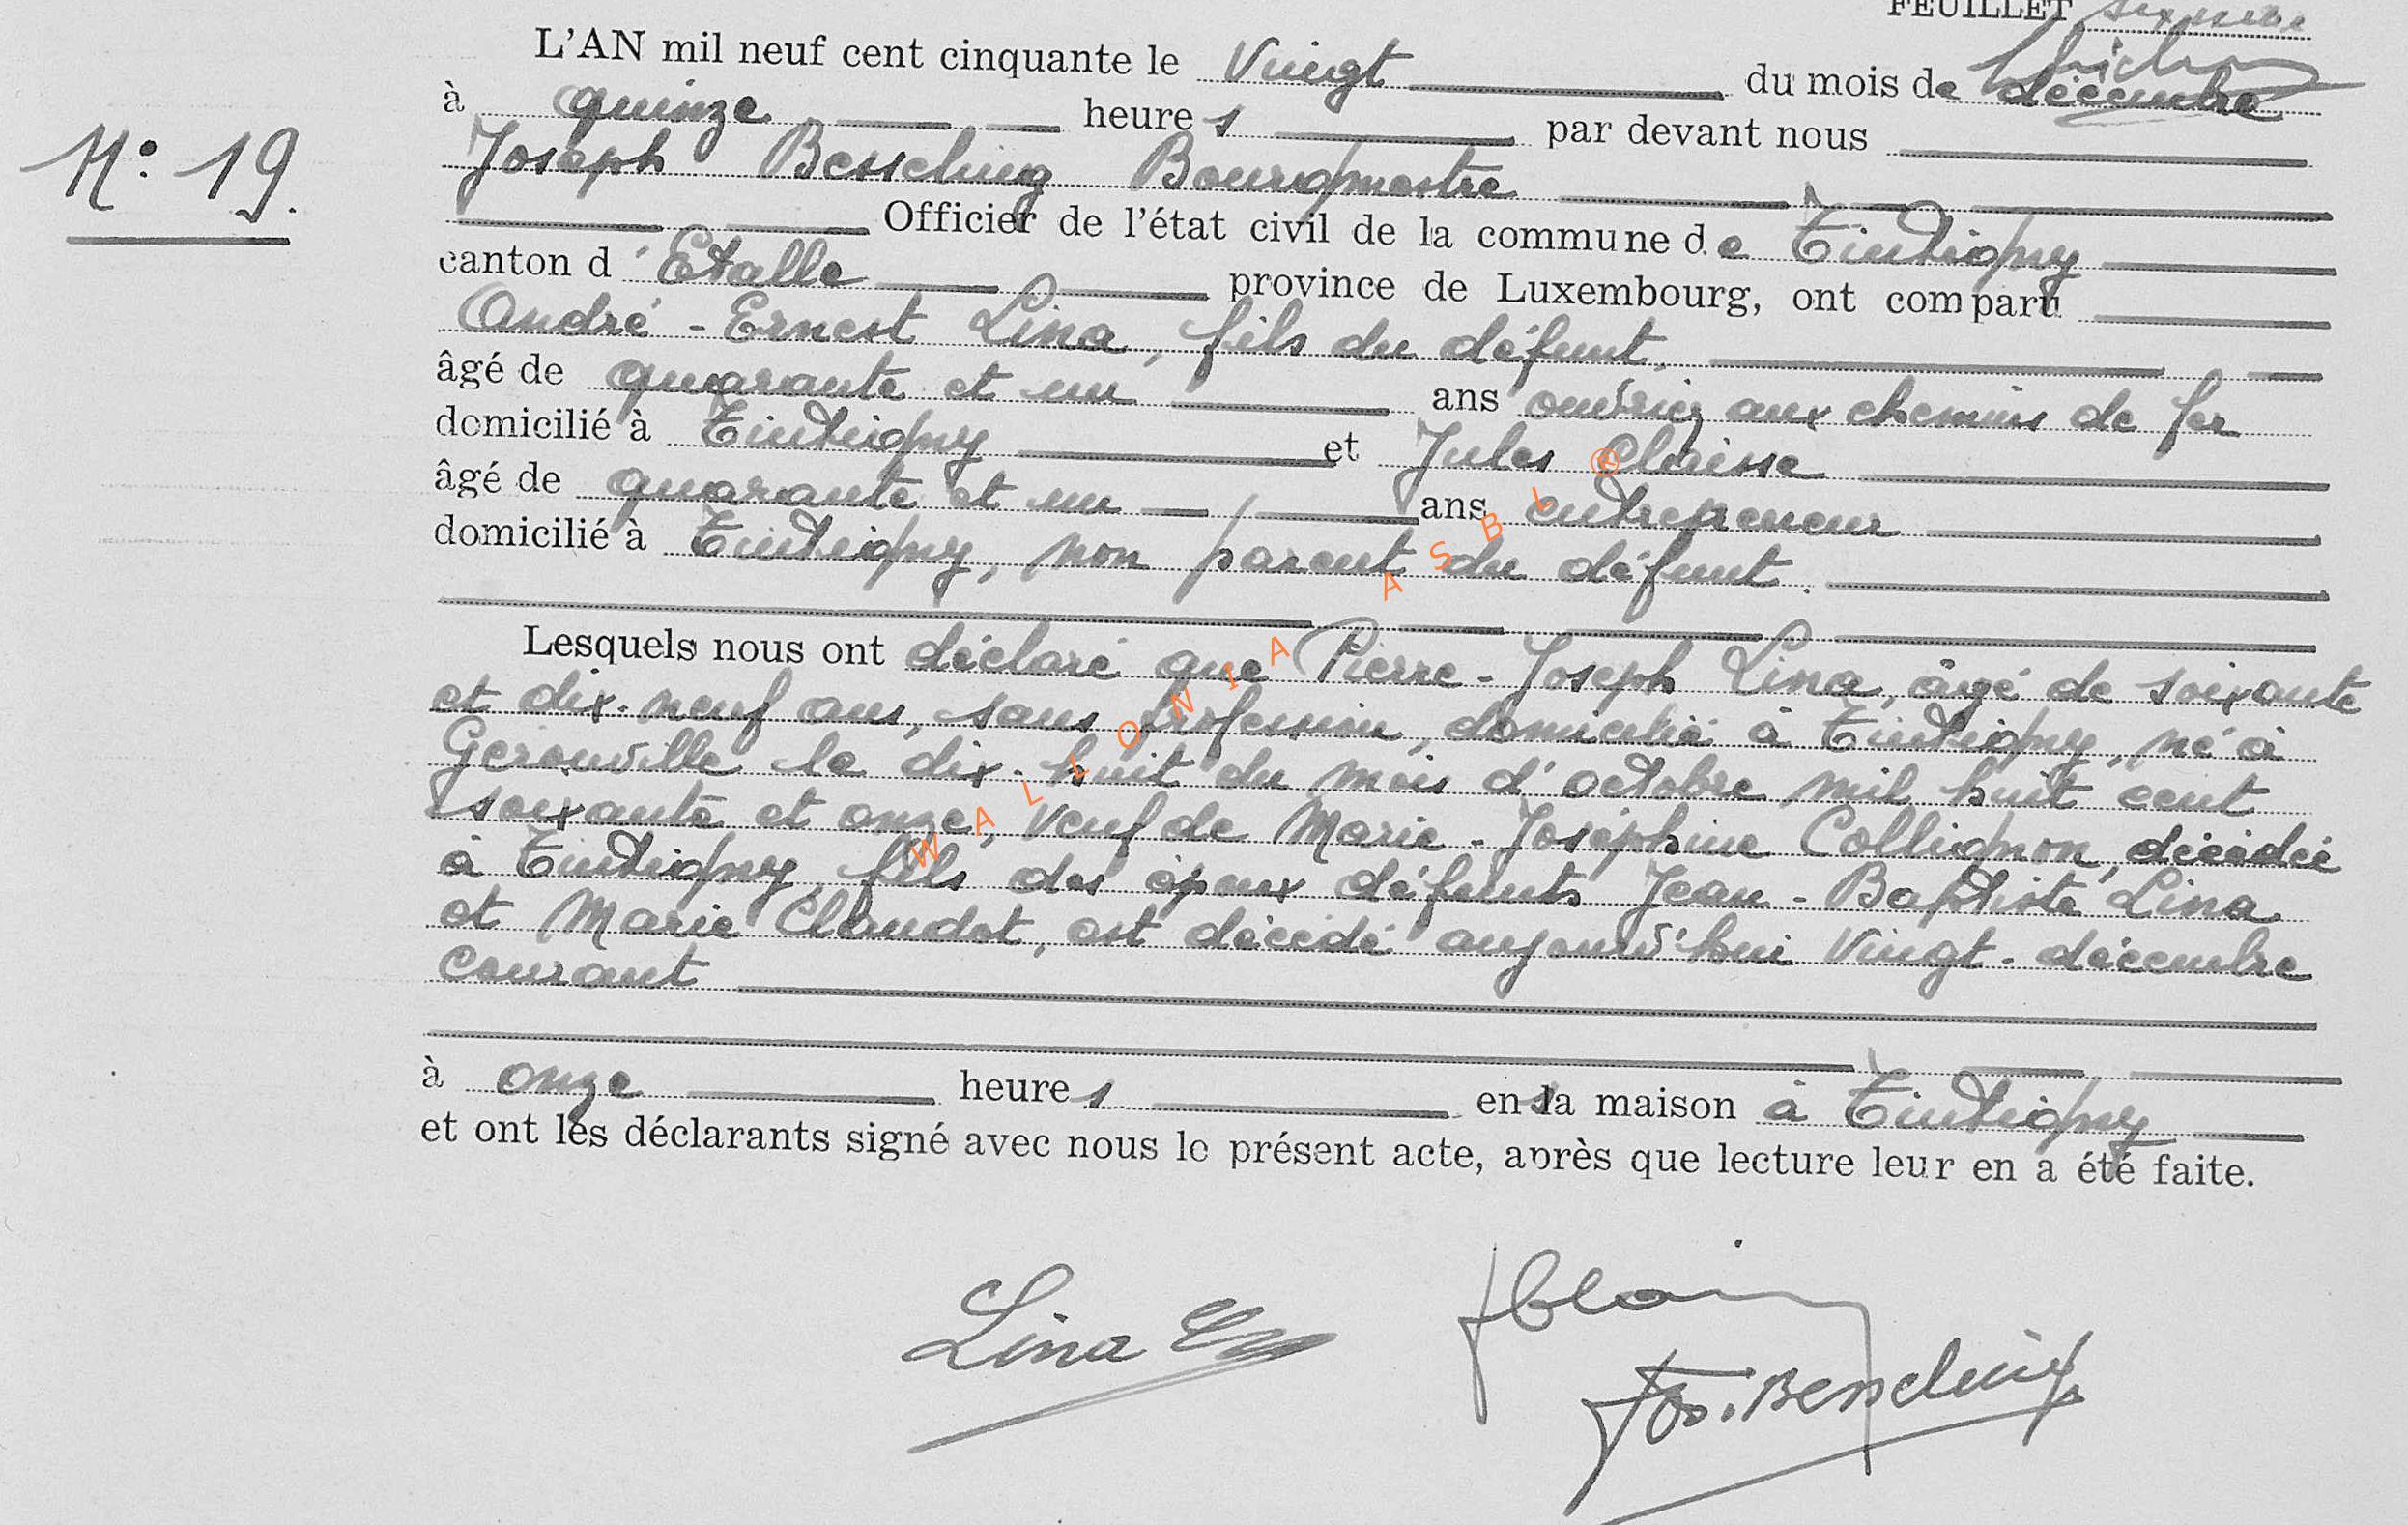 FEUILLET
L'AN mil neuf cent cinquante le Vingt du mois de décembre
à quinze heures par devant nous
N° 19.
Joseph Bessching Bourgmestre
Officier de l'état civil de la commune de Tintigny
canton d'Etalle province de Luxembourg, ont comparu
André-Ernest Lina, fils du défunt,
âgé de quarante et un ans ouvrier aux chemins de fer
domicilié à Tintigny et Jules Claisse
âgé de quarante et un ans entrepreneur
domicilié à Tintigny, non parent du défunt.
Lesquels nous ont déclaré que Pierre-Joseph Lina, âgé de soixante
et dix-neuf ans, sans profession, domicilié à Tintigny, né à
Gérouville le dix-huit du mois d'octobre mil huit cent
soixante et onze, veuf de Marie-Joséphine Collignon, décédée
à Tintigny, fils des époux défunts Jean-Baptiste Lina
et Marie Claudot, est décédé aujourd'hui Vingt-décembre
courant
à onze heures en sa maison à Tintigny
et ont les déclarants signé avec nous le présent acte, après que lecture leur en a été faite.
Lina
Jos. Bessching
WALLONIA ASBL ®